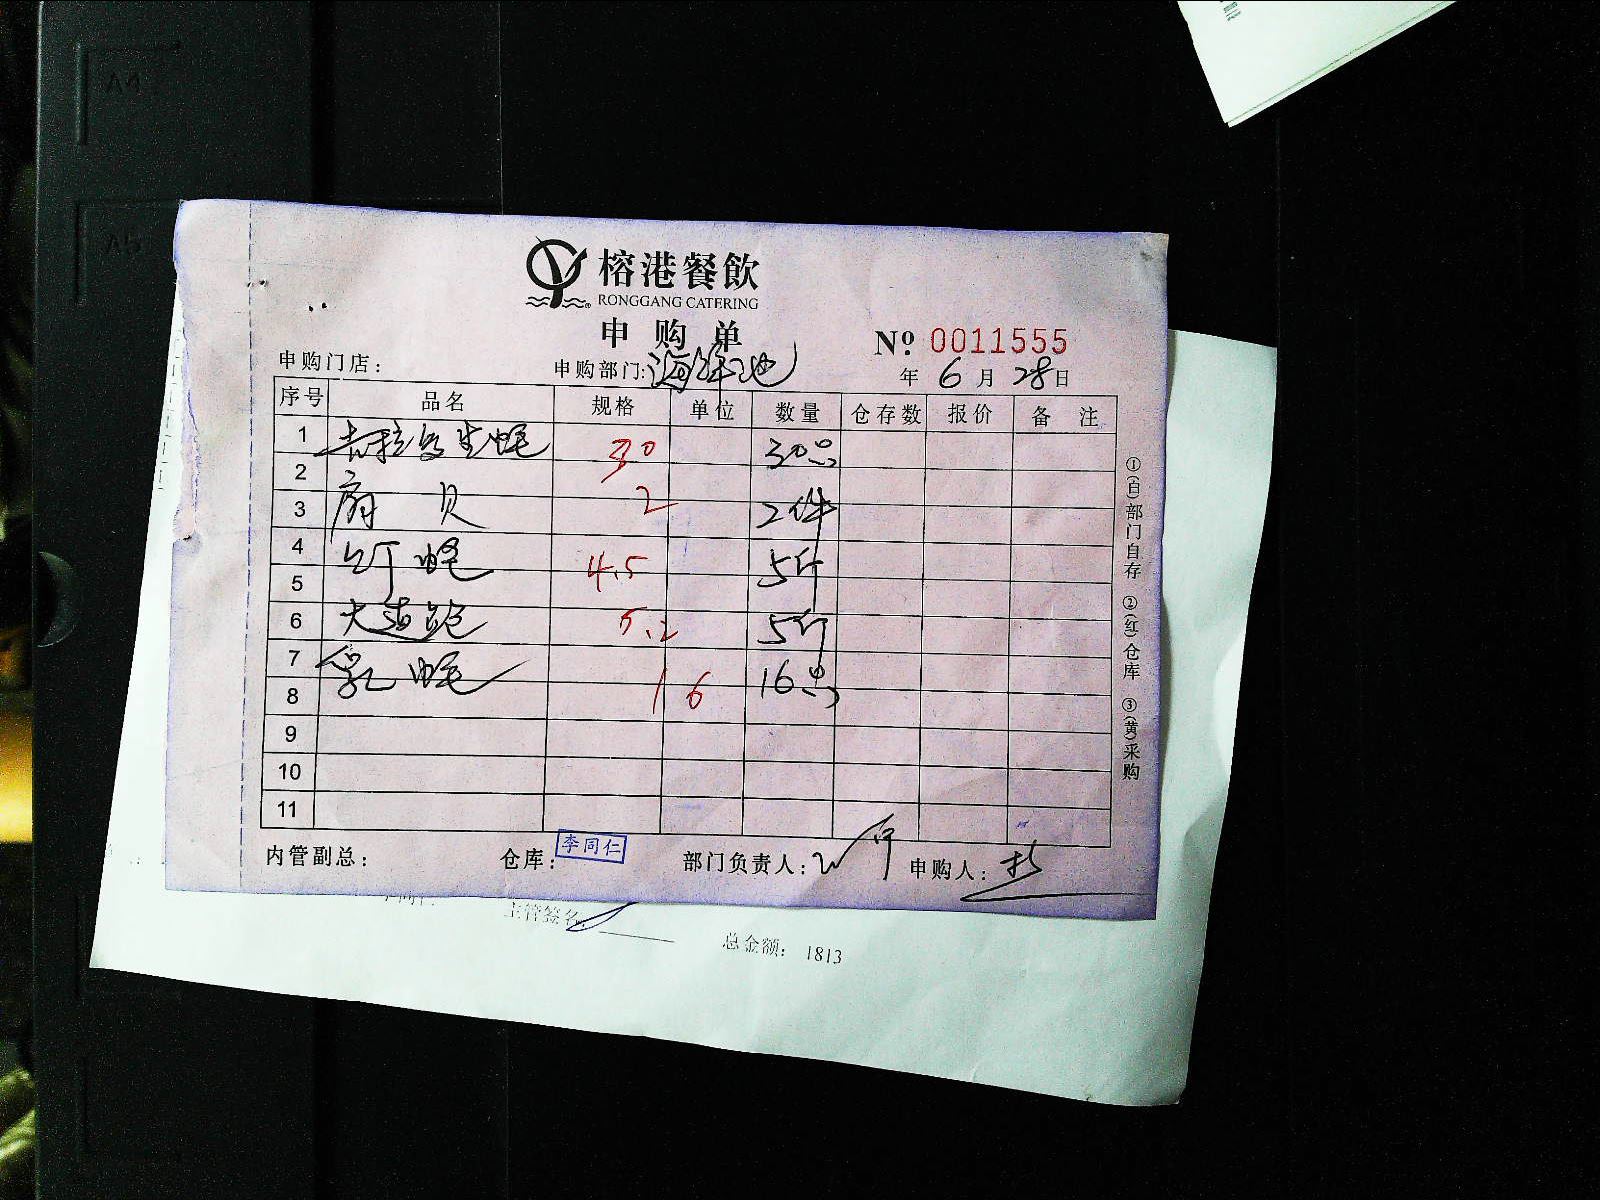 A4
A5
榕港餐飲
RONGGANG CATERING
申购单
№ 0011555
申购门店： 申购部门：海鲜池 年 6 月 28 日
序号 品名 规格 单位 数量 仓存数 报价 备注
1 吉拉多生蚝 30 30只
2
3 扇贝 2 2件
4
5 虾 4.5 5斤
6 大连鲍 5.2 5斤
7
8 乳蚝 16 16只
9
10
11
①(白)部门自存 ②(红)仓库 ③(黄)采购
内管副总： 仓库：李同仁 部门负责人： 申购人：
主管签名：
总金额： 1813